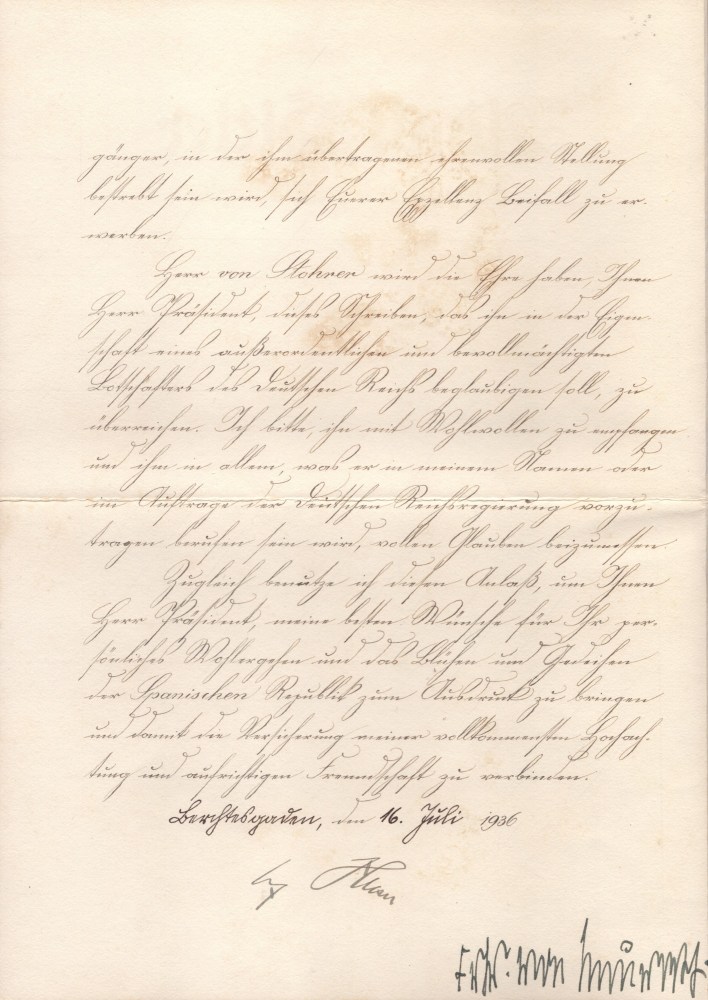 gänger, in der ihm übertragenen ehrenvollen Stellung
bestrebt sein wird, sich Euerer Exzellenz Beifall zu er-
werben.
Herr von Stohrer wird die Ehre haben, Ihnen
Herr Präsident, dieses Schreiben, das ihn in der Eigen-
schaft eines außerordentlichen und bevollmächtigten
Botschafters des Deutschen Reichs beglaubigen soll, zu
überreichen. Ich bitte, ihn mit Wohlwollen zu empfangen
und ihm in allem, was er in meinem Namen oder
im Auftrage der Deutschen Reichsregierung vorzu-
tragen berufen sein wird, vollen Glauben beizumessen.
Zugleich benutze ich diesen Anlaß, um Ihnen
Herr Präsident, meine besten Wünsche für Ihr per-
sönliches Wohlergehen und das Blühen und Gedeihen
der Spanischen Republik zum Ausdruck zu bringen
und damit die Versicherung meiner vollkommensten Hochach-
tung und aufrichtigen Freundschaft zu verbinden.
Berchtesgaden, den 16. Juli 1936
Frhr. von Neurath.